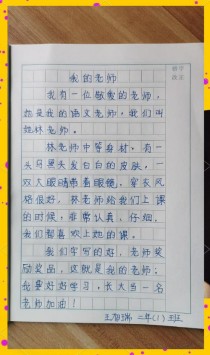 我的老师
我有一位敬爱的老师，
她是我的语文老师，我们叫
她林老师。
林老师中等身材，有一
头乌黑头发白白的皮肤。一
双大眼睛带着眼镜，穿衣风
格很好，林老师给我们上课
的时候，非常认真，仔细，
我们都喜欢上她的课。
我们字写的好，老师奖
励奖品，这就是我的老师，
我要好好学习，长大当一名
老师加油！
二年(1)班